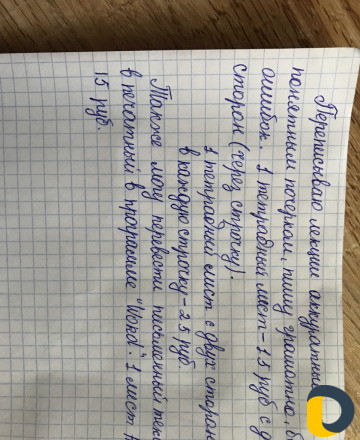 Переписываю лекции аккуратным
понятным почерком, пишу грамотно, б
ошибок. 1 тетрадный лист - 15 руб с д
сторон (через строчку).
1 тетрадный лист с двух сторон
в каждую строчку - 25 руб.
Также могу перевести письменный тек
в печатный в программе "Word". 1 лист
15 руб.